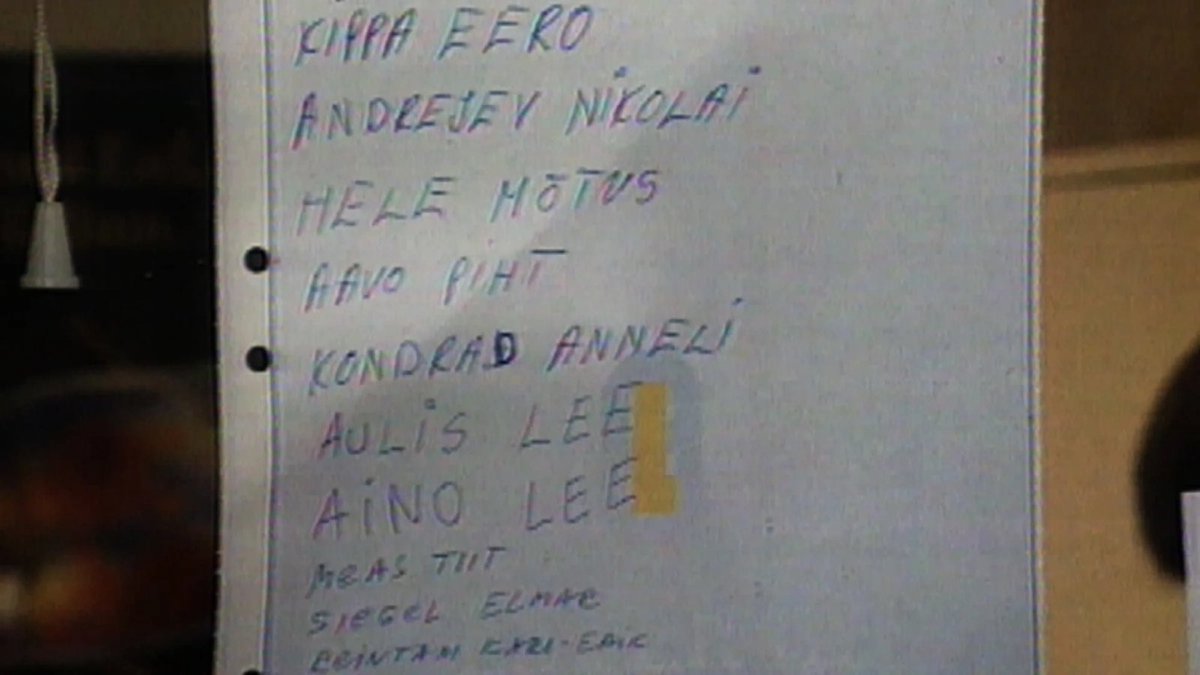 KIPPA EERO
ANDREJEV NiKOLAi
HELE MÕTUS
AAVO PIHT
KONDRAD ANNELi
AULiS LEE
AiNO LEE
MEAS TIIT
SIEGEL ELMAR
KARI-ERIK